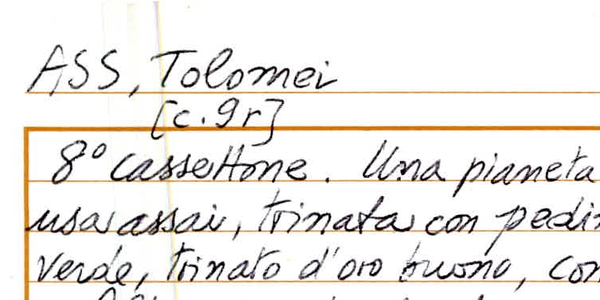 ASS, Tolomei
[c.9r]
8° cassettone. Una pianeta
usa assai, trinata con pedi
verde, trinato d'oro buono, con